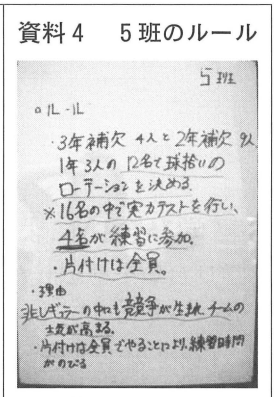 資料4 5班のルール
5班
ルール
・3年補欠 4人と2年補欠 9人
1年 3人の 12名で球拾いの
ローテーションを決める.
※16名の中で実力テストを行い、
4名が練習に参加.
・片付けは全員。
・理由
非レギュラーの中にも競争が生まれ チームの
士気が高まる.
・片付けは全員でやることにより、練習時間
がのびる